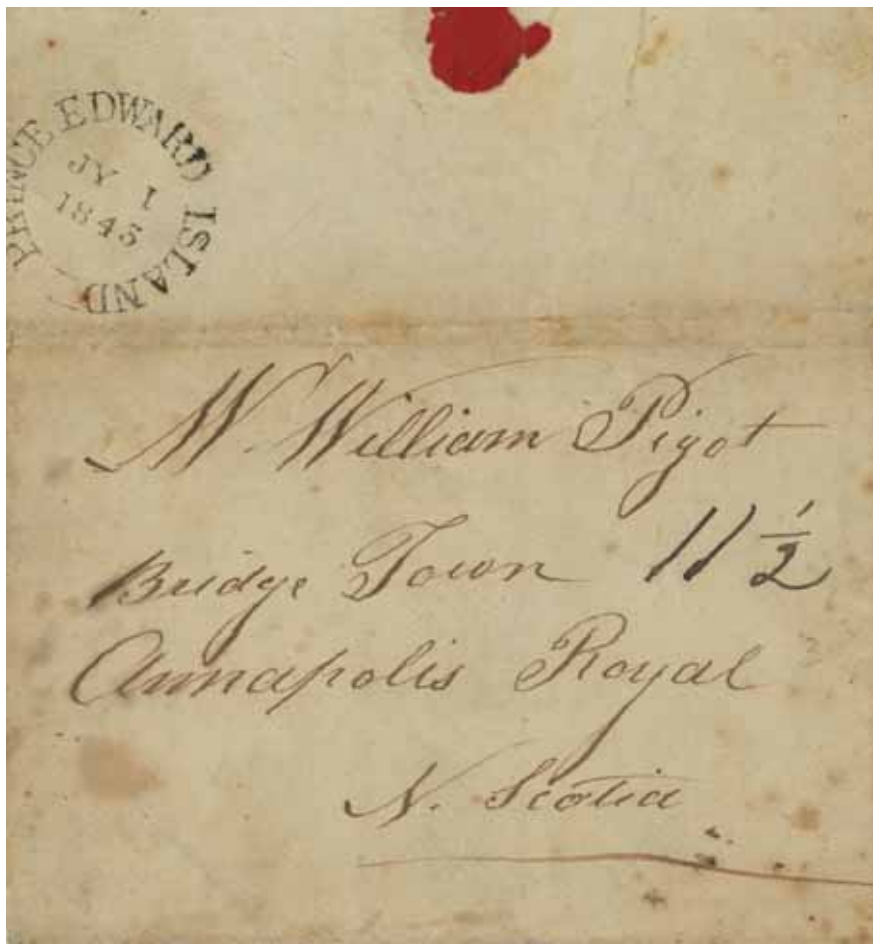 PRINCE EDWARD ISLAND
JY 1
1845
Mr. William Pigot
Bridge Town 11 1/2
Annapolis Royal
N. Scotia